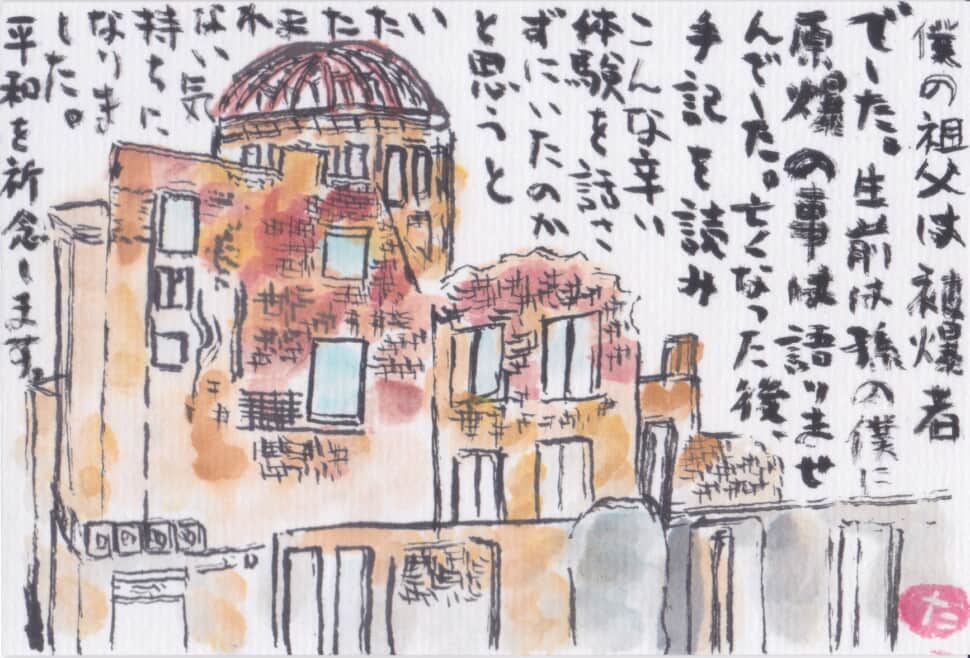 僕の祖父は被爆者
でした。生前は孫の僕に
原爆の事は語りませ
んでした。亡くなった後、
手記を読み
こんな辛い
体験を話さ
ずにいたのか
と思うと
いたたまれ
ない気
持ちに
なりま
した。
平和を祈念します。
た